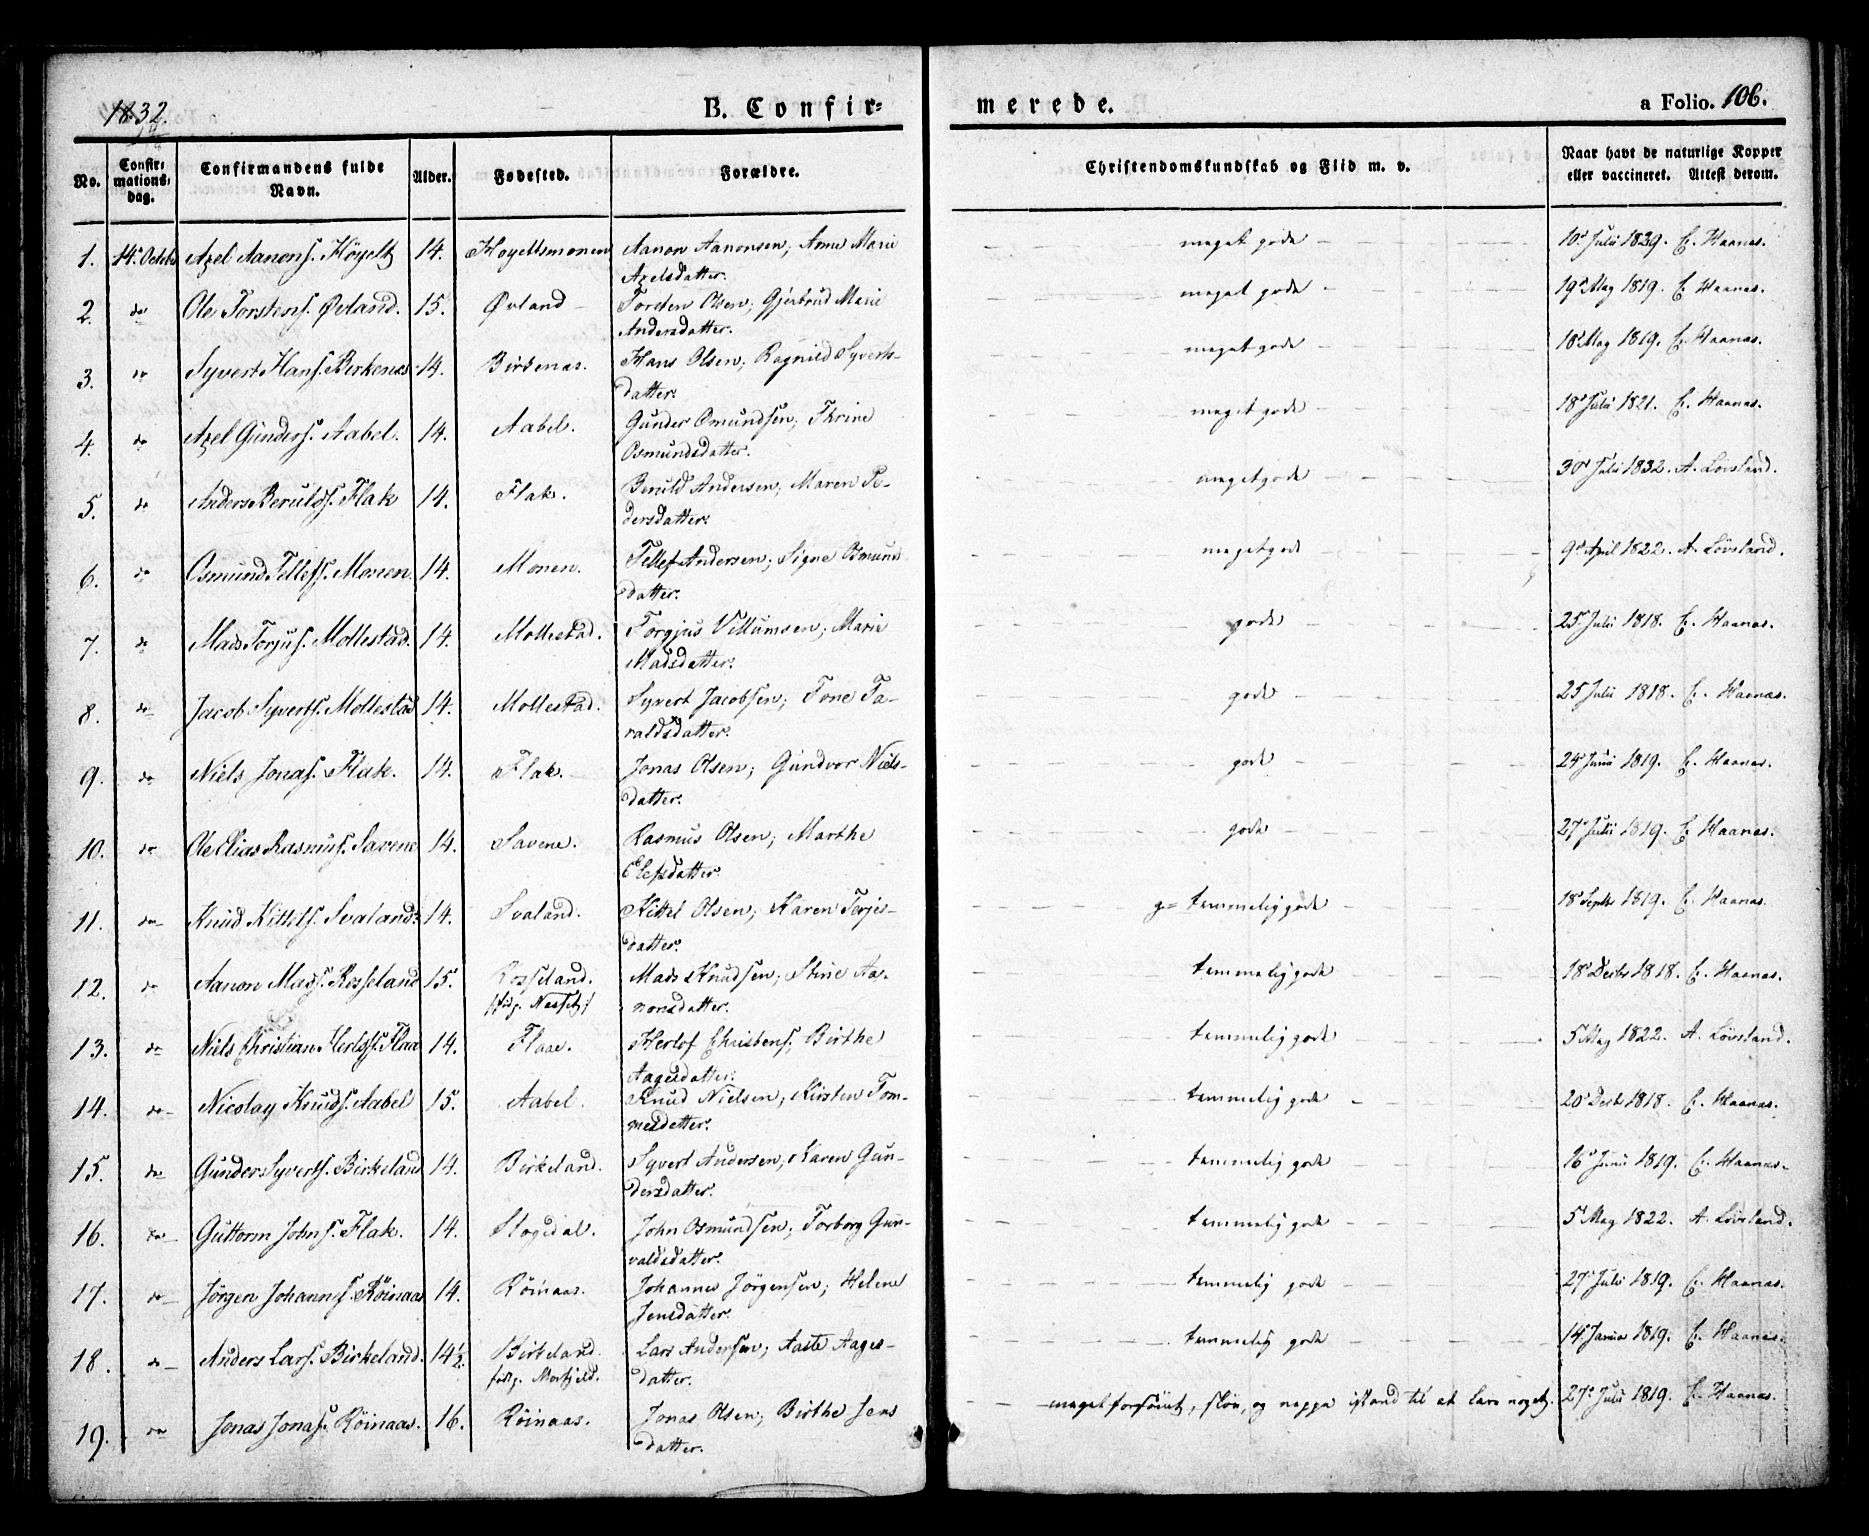 1832.
B. Confirmerede.
a Folio. 106.
No. | Confirmationsdag. | Confirmandens fulde Navn. | Alder. | Fødested. | Forældre. | Christendomskundskab og Flid m. v. | Naar havt de naturlige Kopper eller vaccineret. Attest derom.
1. 14de Octobr Axel Aanons. Høyelt 14. Høyeltsmonen Aanon Aanonsen; Anne Marie Axelsdatter. meget gode 10de Julii 1829. E. Haanas.
2. do Ole Torstens. Øvland. 15. Øvland Torsten Olsen; Gjertrud Marie Andersdatter. meget gode 19de May 1819. E. Haanas.
3. do Syvert Hans. Birkenas 14. Birkenas. Hans Olsen; Ragnild Syvertsdatter. meget gode 18de May 1819. E. Haanas.
4. do Axel Gunders. Aabel. 14. Aabel. Gunder Omundsen; Thrine Osmundsdatter. meget gode 18de Julii 1821. E. Haanas.
5. do Anders Berulds. Flak 14. Flak. Beruld Andersen; Maren Pedersdatter. meget gode 30de Julii 1832. A. Løvland.
6. do Osmund Tellefs. Monen 14. Monen. Tellef Andersen; Signe Osmundsdatter. meget gode 9de April 1822. A. Lövland.
7. do Mads Torjus. Mollestad. 14. Mollestad. Torgjus Villumsen; Marie Madsdatter. gode 25de Julii 1818. E. Haanas.
8. do Jacob Syverts. Mollestad 14. Mollestad. Syvert Jacobsen; Tone Taraldsdatter. gode 25 Julii 1818. E. Haanas.
9. do Niels Jonas. Flak. 14. Flak. Jonas Olsen; Gundvor Nielsdatter. gode 24de Junii 1819. E. Haanas.
10. do Ole Elias Rasmus. Savene 14. Savene. Rasmus Olsen; Marthe Elefsdatter. gode 27de Julii 1819. E. Haanas.
11. do Knud Kittels. Svaland 14. Svaland. Kittel Olsen; Karen Terjesdatter. g= temmelig gode 18de Septbr 1819. E. Haanas.
12. do Aanon Mads. Rosseland 15. Rosseland. Mads Knudsen; Stine Aanonsdatter. temmelig gode 18de Decbr 1818. E. Haanas.
13. do Niels Christian Herlofs. Flaa 14. Flaae. Herlof Christens. Birthe Aagesdatter. temmelig gode 5de May 1822. A. Lövland.
14. do Nicolay Knuds. Aabel 15. Aabel. Knud Nielsen; Kirsten Tommesdatter. temmelig gode 20de Decbr 1818. E. Haanas.
15. do Gunder Syverts. Birkeland 14. Birkeland. Syvert Andersen; Karen Gundersdatter. temmelig gode 16de Junii 1819. E. Haanas.
16. do Guttorm Johns. Flak. 14. Stogedal. John Osmundsen; Torborg Gunvaldsdatter. temmelig gode 5de May 1822. A. Lövland.
17. do Jörgen Johanns. Röinaas 14. Röinaas. Johannes Jörgensen; Helene Jensdatter. temmelig gode 27de Julii 1819. E. Haanas.
18. do Anders Lars. Birkeland. 14½. Birkeland. Lars Andersen; Aaste Aagesdatter. temmelig gode 14de Janua 1819. E. Haanas.
19. do Jonas Jonas. Röinaas. 16. Röinaas. Jonas Olsen; Birthe Jensdatter. meget forsömt, sløv, og neppe istand til at lære noget. 27de Julii 1819. E. Haanas.